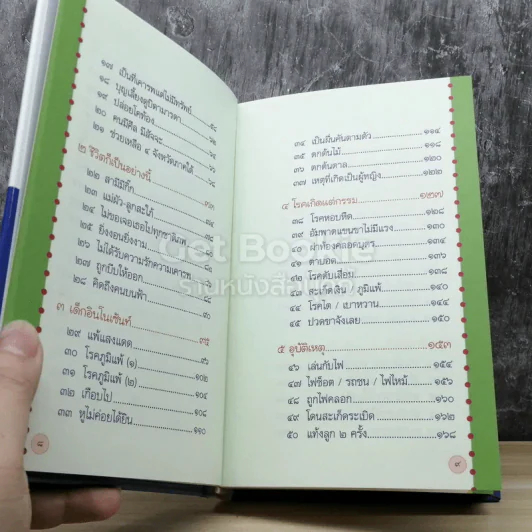 ๑๗ เป็นที่เคารพแต่ไม่มีทรัพย์
๑๘ บุญเลี้ยงดูบิดามารดา
๑๙ ปล่อยโคท้อง
๒๐ คนมีศีล มีสัจจะ
๒๑ ช่วยเหลือ ๔ จังหวัดภาคใต้
๒ ชีวิตก็เป็นอย่างนี้
๒๒ สามีมีกิ๊ก
๒๓ แม่ผัว-ลูกสะใภ้
๒๔ ไม่ขอเจอเธอไปทุกชาติภพ
๒๕ ยิ่งงอนยิ่งงาม
๒๖ ไม่ได้รับความรักความเคารพ
๒๗ ถูกบีบให้ออก
๒๘ คิดถึงคนบนฟ้า
๓ เด็กอินโนเซ้นท์
๒๙ แพ้แสงแดด
๓๐ โรคภูมิแพ้ (๑) ๑๐๒
๓๑ โรคภูมิแพ้ (๒) ๑๐๔
๓๒ เกือบไป ๑๐๘
๓๓ หูไม่ค่อยได้ยิน ๑๑๐
๘
๓๔ เป็นผื่นคันตามตัว ๑๑๔
๓๕ ตกต้นไม้ ๑๑๘
๓๖ ตกต้นตาล ๑๒๐
๓๗ เหตุที่เกิดเป็นผู้หญิง ๑๒๒
๔ โรคเกิดแต่กรรม ๑๒๗
๓๘ โรคหอบหืด ๑๒๘
๓๙ อัมพาตแขนขาไม่มีแรง
๔๐ ผ่าท้องคลอดบุตร
๔๑ ตาบอด
๔๒ โรคตับเสื่อม ๑๓๘
๔๓ สะเก็ดเงิน / ภูมิแพ้ ๑๔๐
๔๔ โรคไต / เบาหวาน ๑๔๔
๔๕ ปวดขาจังเลย ๑๕๐
๕ อุบัติเหตุ ๑๕๓
๔๖ เล่นกับไฟ ๑๕๔
๔๗ ไฟช็อต / รถชน / ไฟไหม้ ๑๕๖
๔๘ ถูกไฟคลอก ๑๖๐
๔๙ โดนสะเก็ดระเบิด ๑๖๒
๕๐ แท้งลูก ๒ ครั้ง ๑๖๘
๙
Get Bookie